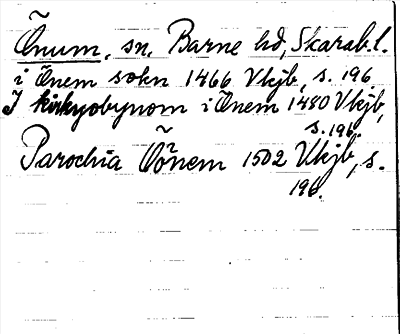 Õnum, sn, Barne hd, Skarab.l.
i Õnem sokn 1466 Vkjb, s. 196
I kirkyobynom i Õnem 1480 Vkjb,
s. 196.
Parochia Oõnem 1502 Vkjb, s.
196.